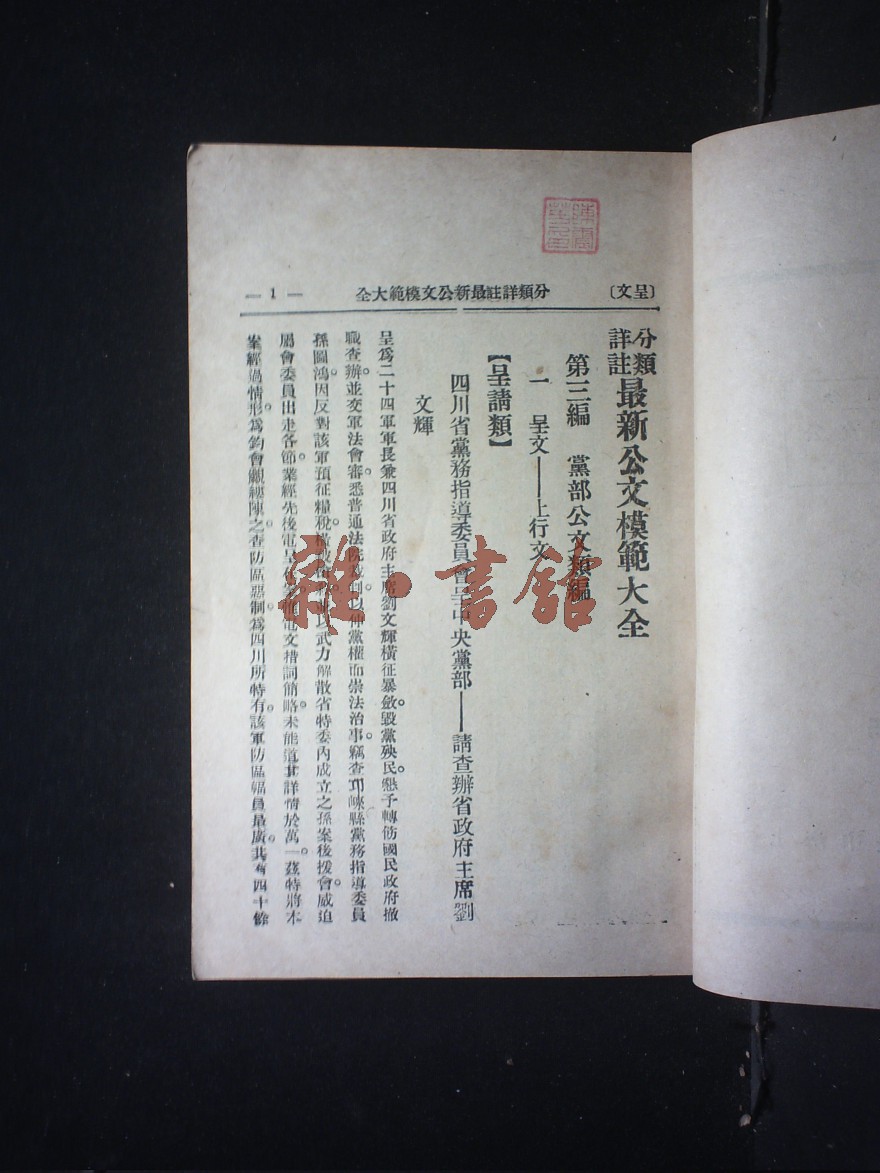 〔呈文〕
分類詳註最新公文模範大全
— 1 —
分類詳註最新公文模範大全
第三編 黨部公文類編
一 呈文——上行文
【呈請類】
四川省黨務指導委員會呈中央黨部——請查辦省政府主席劉
文輝
呈爲二十四軍軍長兼四川省政府主席劉文輝橫征暴斂。毀黨殃民。懇予轉飭國民政府撤
職查辦。並交軍法會審。悉普通法院 以伸黨權而崇法治事。竊查邛崍縣黨務指導委員
孫圖鴻因反對該軍預征糧稅。橫被 以武力解散省特委內成立之孫案後援會。威迫
屬會委員出走各節。業經先後電呈 電文措詞簡略。未能道其詳情於萬一。茲特將本
案經過情形。爲鈞會覼縷陳之。查防區惡制。爲四川所特有。該軍防區幅員最廣。共有四十餘
雜·書館